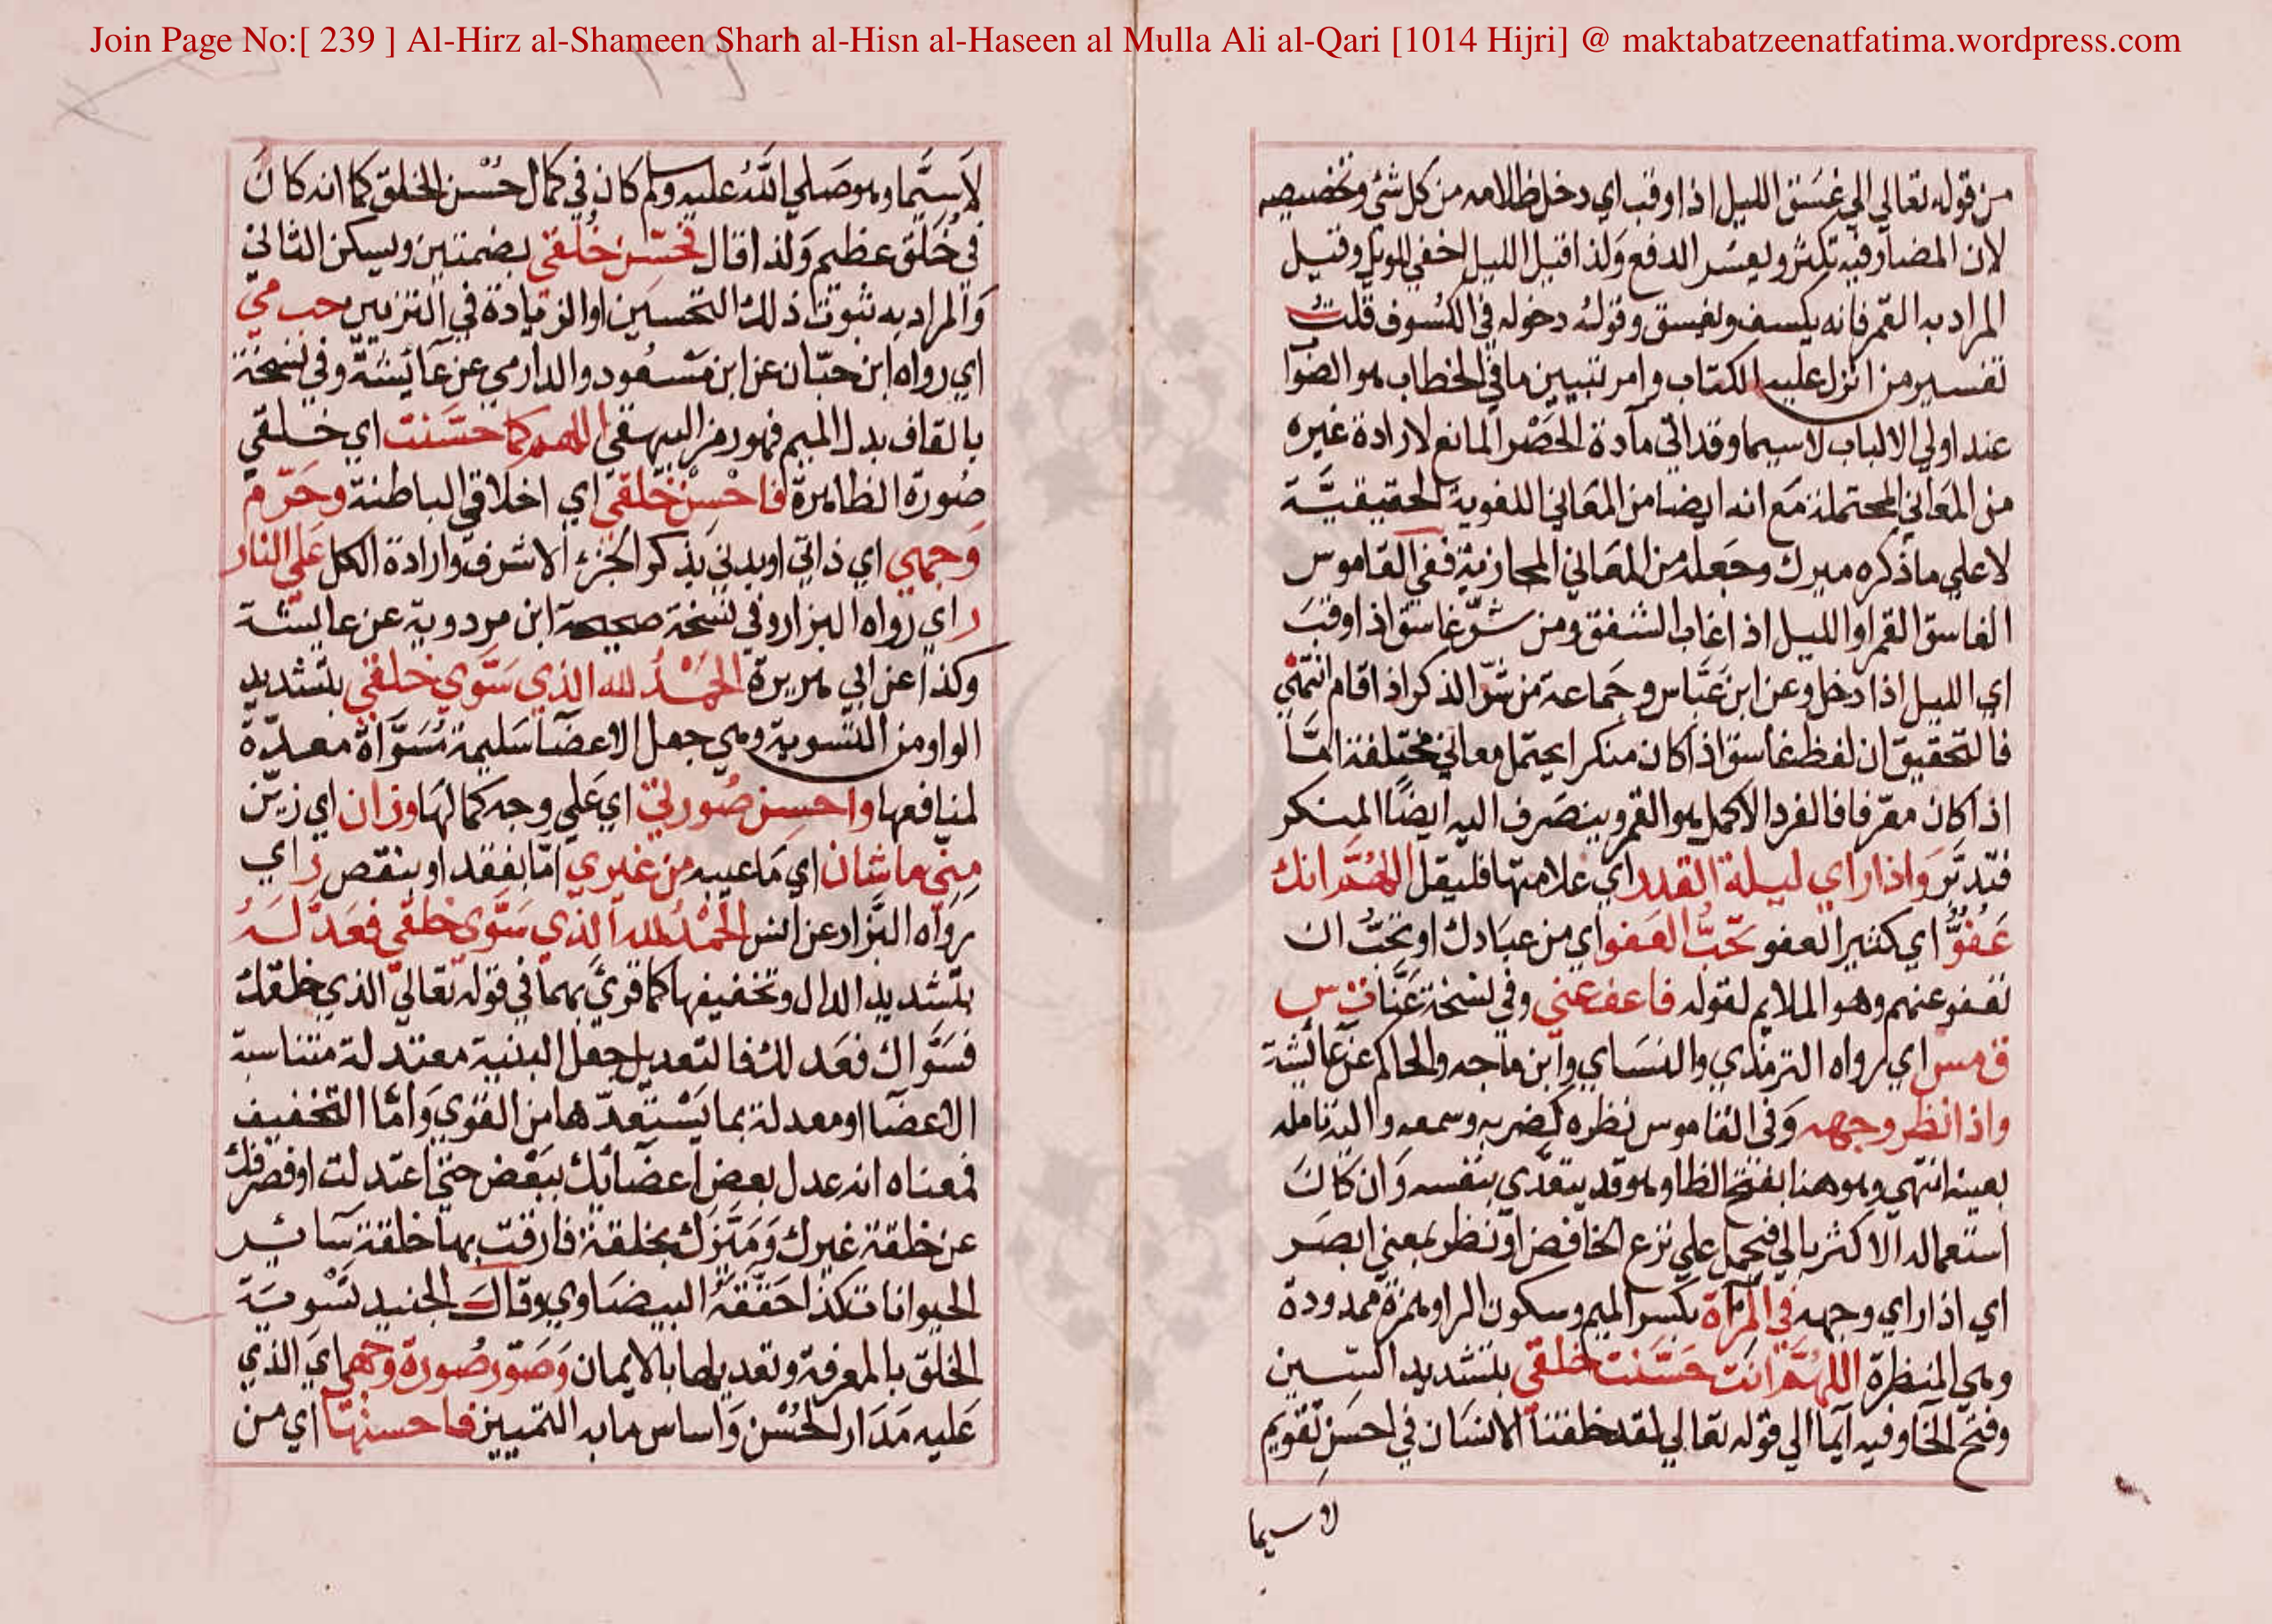 Join Page No:[ 239 ] Al-Hirz al-Shameen Sharh al-Hisn al-Haseen al Mulla Ali al-Qari [1014 Hijri] @ maktabatzeenatfatima.wordpress.com
من قوله تعالي الي غسق الليل اذا وقب اي دخل ظلامه من كل شئ وتخصيصه
لان المضار فيه تكثر ويعسر الدفع ولذا قيل الليل اخفي للويل وقيل
المراد به القمر فانه يكسف ويغسق وقوله دخوله في الكسوف قلت
تفسير من انزل عليه الكتاب وامر بتبيين ما في الخطاب هو الصوا
عند اولي الالباب لاسيما وقد اتي مآدة الحصر المانع لارادة غيره
من المعاني المحتملة مع انه ايضا من المعاني اللغوية الحقيقية
لا علي ما ذكره ميرك وجعله من المعاني المجازية ففي القاموس
الغاسق القمر او الليل اذا غاب الشفق ومن شر غاسق اذا وقب
اي الليل اذا دخل وعن ابن عباس وجماعة من شر الذكر اذا قام انتهي
فالتحقيق ان لفظ غاسق اذا كان منكرا يحتمل معاني مختلفة اما
اذا كان معرفا فالفرد الاكمل هو القمر وينصرف اليه ايضا المنكر
فتدبر واذا راي ليلة القدر اي علامتها فليقل اللهم انك
عفو اي كثير العفو تحب العفو اي من عبادك او تحب ان
تعفو عنهم وهو الملايم لقوله فاعف عني وفي نسخة عنا ت س
ق مس اي رواه الترمذي والنساي وابن ماجه والحاكم عن عائشة
واذا نظر وجهه وفي القاموس نظره كضربه وسمعه واليه تامله
بعينه انتهي وهو هنا بفتح الظا وهو قد يتعدي بنفسه وان كان
استعماله الاكثر بالي فيحمل علي نزع الخافض او نظر بمعني ابصر
اي اذا راي وجهه في المرآة بكسر الميم وسكون الرا وهمزة ممدودة
وهي المنظرة اللهم انت حسنت خلقي بتشديد السين
وفتح الخا وفيه ايما الي قوله تعالي لقد خلقنا الانسان في احسن تقويم
لا سيما
لاسيما وهو صلي الله عليه وسلم كان في كمال حسن الخلق كما انه كان
في خلق عظيم ولذا قال فحسن خلقي بضمتين ويسكن الثاني
والمراد به ثبوت ذلك التحسين او الزيادة في التزيين حب مي
اي رواه ابن حبان عن ابن مسعود والدارمي عن عائشة وفي نسخة
بالقاف بدل الميم فهو رمز البيهقي اللهم كما حسنت اي خلقي
صورة الظاهرة فاحسن خلقي اي اخلاقي الباطنة وحرم
وجهي اي ذاتي او بدني بذكر الجزء الاشرف وارادة الكل علي النار
ر اي رواه البزار وفي نسخة صحيحة ابن مردوية عن عايشة
وكذا عن ابي هريرة الحمد لله الذي سوي خلقي بتشديد
الواو من التسوية وهي جعل الاعضا سليمة مسواة معدة
لمنافعها واحسن صورتي اي علي وجه كمالها وزان اي زين
مني ما شان اي ما عيبه من غيري اما بفقد او بنقص ر اي
رواه البزار عن انس الحمد لله الذي سوي خلقي فعدله
بتشديد الدال وتخفيفها كما قرئ بهما في قوله تعالي الذي خلقك
فسواك فعدلك فالتعديل جعل البنية معتدلة متناسبة
الاعضا او معدلة بما يستعدها من القوي واما التخفيف
فمعناه انه عدل بعض اعضائك ببعض حتي اعتدلت او فصرفك
عن خلقة غيرك وميزك بخلقة فارقت بها خلقة سائر
الحيوانات كذا حققه البيضاوي وقال الجنيد تسوية
الخلق بالمعرفة وتعديلها بالايمان وصور صورة وجهي اي الذي
عليه مدار الحسن واساس ما به التمييز فاحسنها اي من